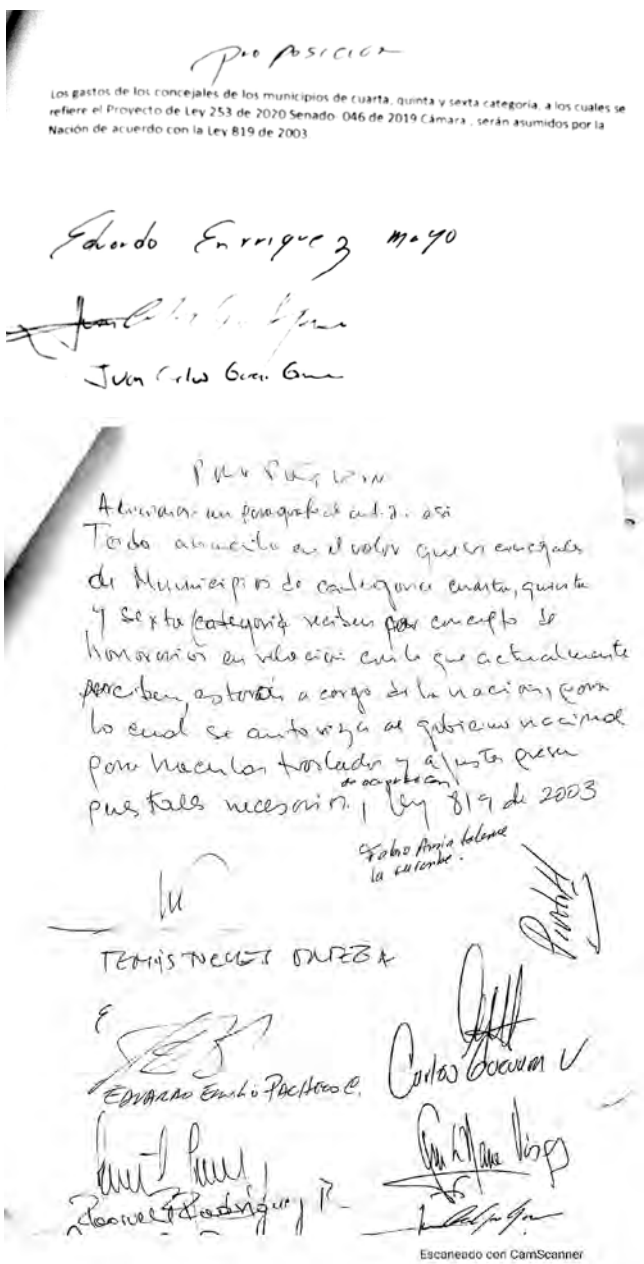 Proposicion
Los gastos de los concejales de los municipios de cuarta, quinta y sexta categoría, a los cuales se
refiere el Proyecto de Ley 253 de 2020 Senado- 046 de 2019 Cámara , serán asumidos por la
Nación de acuerdo con la Ley 819 de 2003
Eduardo Enrriquez mayo
Juan Carlos
Proposicion
un paragrafo al así
Todo en el valor que los concejales
de Municipios de categoria cuarta, quinta
y sexta categoria reciben por concepto de
honorarios en relación con lo que actualmente
perciben, estarán a cargo de la nación, para
lo cual se autoriza al gobierno nacional
para hacer los traslados y ajustes presu
puestales necesarios, de acuerdo con ley 819 de 2003
Fabio
TEMISTOCLES ORTEGA
EDUARDO EMILIO PACHECO C.
Carlos Guevara V
Roosvelt Rodríguez R
Escaneado con CamScanner